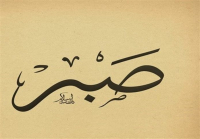 صَبْر